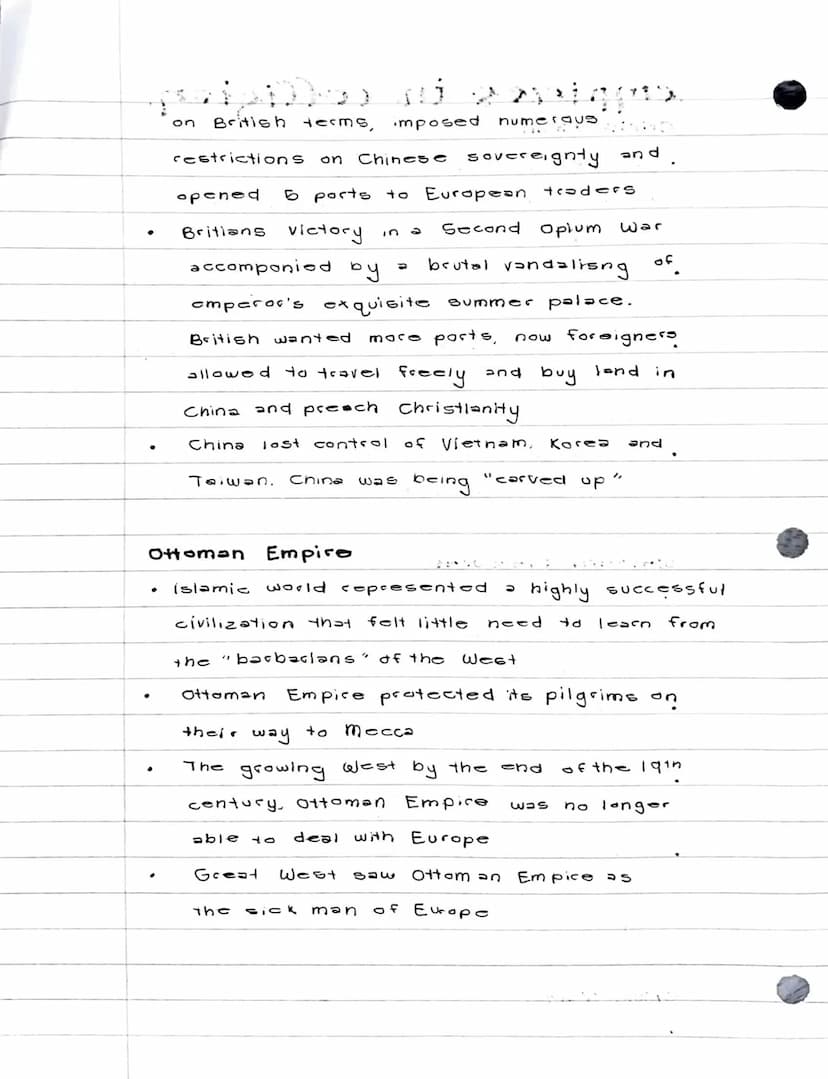 on British terms, imposed numerous
restrictions on Chinese sovereignty and
opened 5 ports to European traders
• Britians Victory in a Second Opium War
accompanied by a brutal vandalisng of
emperor's exquisite summer palace.
British wanted more ports, now foreigners
allowed to travel freely and buy land in
China and preach Christianity
• China lost control of Vietnam, Korea and
Taiwan. China was being "carved up"
Ottoman Empire
• Islamic world represented a highly successful
civilization that felt little need to learn from
the "barbarians" of the West
• Ottoman Empire protected its pilgrims on
their way to Mecca
• The growing West by the end of the 19th
century, Ottoman Empire was no longer
able to deal with Europe
• Great West saw Ottoman Empire as
the sick man of Europe